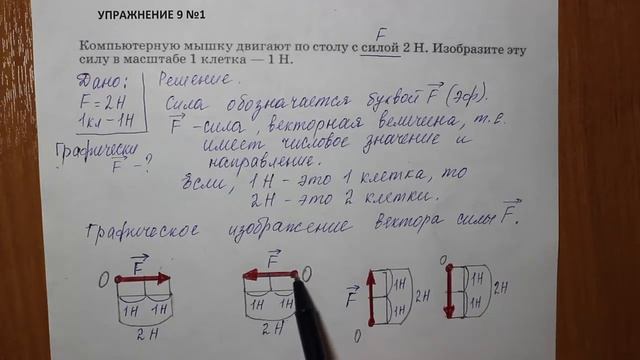 УПРАЖНЕНИЕ 9 №1
F
Компьютерную мышку двигают по столу с силой 2 Н. Изобразите эту
силу в масштабе 1 клетка — 1 Н.
Дано: Решение.
F = 2Н Сила обозначается буквой F (эф).
1кл – 1Н F – сила, векторная величина, т.е.
имеет числовое значение и
Графически направление.
F – ? Если, 1Н – это 1 клетка, то
2Н – это 2 клетки.
Графическое изображение вектора силы F.
O F F O F O
1Н 1Н 1Н 1Н 1Н 1Н 1Н 1Н
2Н 2Н 2Н 2Н
O